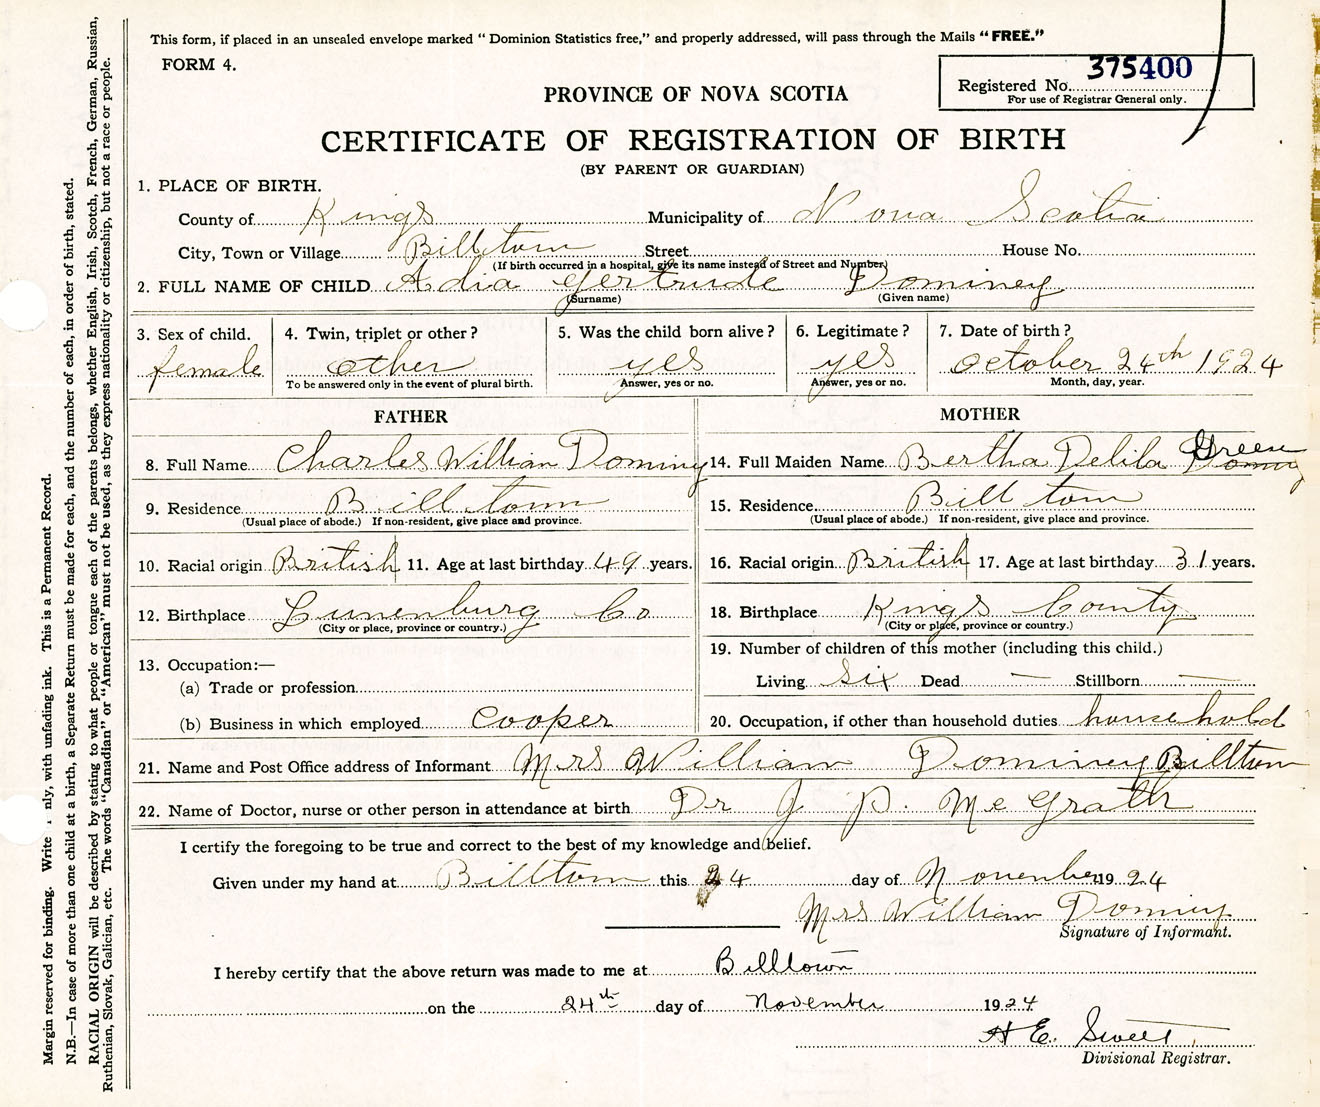 This form, if placed in an unsealed envelope marked "Dominion Statistics free," and properly addressed, will pass through the Mails "FREE."
FORM 4.
Registered No. 375400
For use of Registrar General only.
PROVINCE OF NOVA SCOTIA
CERTIFICATE OF REGISTRATION OF BIRTH
(BY PARENT OR GUARDIAN)
1. PLACE OF BIRTH.
County of Kings Municipality of Nova Scotia
City, Town or Village Billtown Street House No.
(If birth occurred in a hospital, give its name instead of Street and Number)
2. FULL NAME OF CHILD Adia Gertrude Dominey
(Surname) (Given name)
3. Sex of child. 4. Twin, triplet or other? 5. Was the child born alive? 6. Legitimate? 7. Date of birth?
female other yes yes October 24th 1924
To be answered only in the event of plural birth. Answer, yes or no. Answer, yes or no. Month, day, year.
FATHER MOTHER
8. Full Name Charles William Dominy 14. Full Maiden Name Bertha Delila Greene Dominy
9. Residence Billtown 15. Residence Billtown
(Usual place of abode.) If non-resident, give place and province. (Usual place of abode.) If non-resident, give place and province.
10. Racial origin British 11. Age at last birthday 49 years. 16. Racial origin British 17. Age at last birthday 31 years.
12. Birthplace Lunenburg Co 18. Birthplace Kings County
(City or place, province or country.) (City or place, province or country.)
13. Occupation:— 19. Number of children of this mother (including this child.)
(a) Trade or profession Living Six Dead — Stillborn —
(b) Business in which employed Cooper 20. Occupation, if other than household duties household
21. Name and Post Office address of Informant Mrs William Dominey Billtown
22. Name of Doctor, nurse or other person in attendance at birth Dr J P. McGrath
I certify the foregoing to be true and correct to the best of my knowledge and belief.
Given under my hand at Billtown this 24 day of November 1924
Mrs William Dominy
Signature of Informant.
I hereby certify that the above return was made to me at Billtown
on the 24th day of November 1924
H E. Sweet
Divisional Registrar.
Margin reserved for binding. Write nly, with unfading ink. This is a Permanent Record.
N.B.—In case of more than one child at a birth, a Separate Return must be made for each, and the number of each, in order of birth, stated.
RACIAL ORIGIN will be described by stating to what people or tongue each of the parents belongs, whether English, Irish, Scotch, French, German, Russian,
Ruthenian, Slovak, Galician, etc. The words "Canadian" or "American" must not be used, as they express nationality or citizenship, but not a race or people.